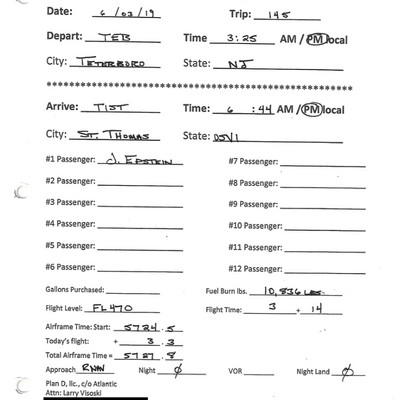 Date: 6/03/19 Trip: 145
Depart: TEB Time 3:25 AM / PM local
City: TETERBORO State: NJ
****************************************************
Arrive: TIST Time: 6:44 AM / PM local
City: ST. THOMAS State: USVI
#1 Passenger: J. EPSTEIN #7 Passenger:
#2 Passenger: #8 Passenger:
#3 Passenger: #9 Passenger:
#4 Passenger: #10 Passenger:
#5 Passenger: #11 Passenger:
#6 Passenger: #12 Passenger:
Gallons Purchased: Fuel Burn lbs. 10,836 LBS
Flight Level: FL470 Flight Time: 3 + 14
Airframe Time: Start: 5724.5
Today's flight: + 3.3
Total Airframe Time = 5727.8
Approach RNAV Night Ø VOR Night Land Ø
Plan D, llc., c/o Atlantic
Attn: Larry Visoski